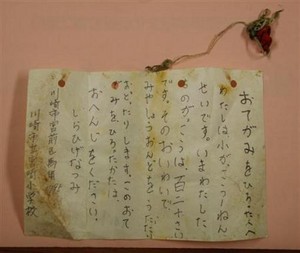 おてがみをひろったかたへ
わたしは小がっこう一ねん
せいです。いまわたした
ちのがっこうは、百二十さい
です。そのおいわいで
みやしょうおんどをうたった
おどったりします。このおて
がみをひろったかたは、
おへんじをください。
しらひげなつみ
川崎市宮前区馬
川崎市 小学校